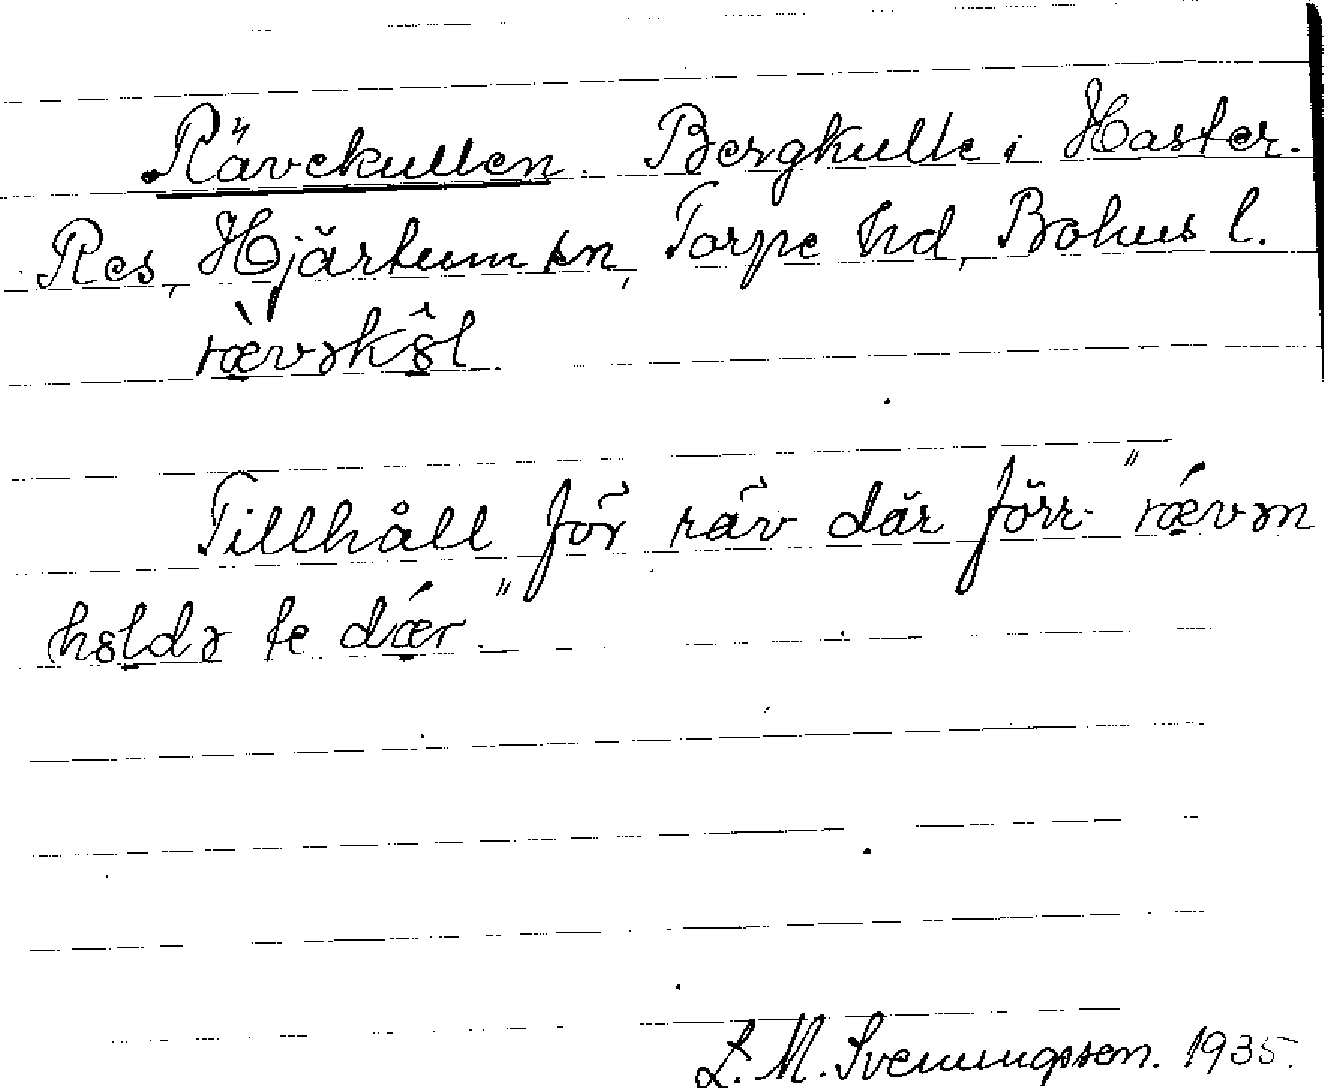 Rävekullen. Bergkulle i Haster.
Res, Hjärtum sn, Torpe hd, Bohus l.
rævəkȣl
Tillhåll för räv där förr. "rævən
hȣldə te dær."
L. M. Svenungsson. 1935.